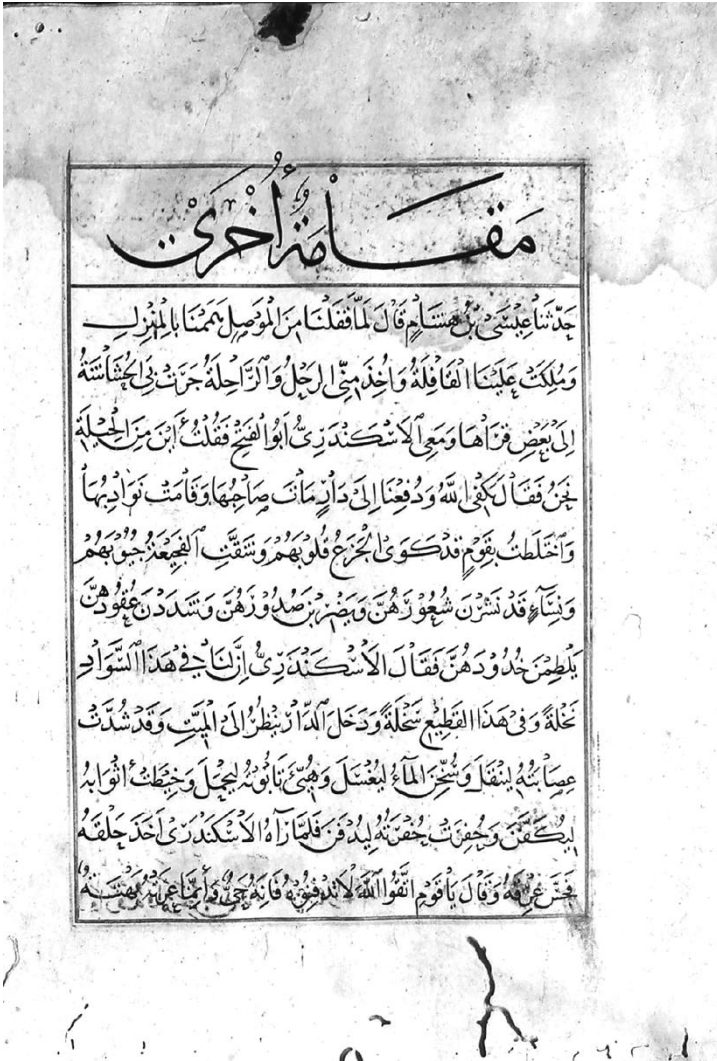 مَقَامَةٌ أُخْرَى
حَدَّثَنَا عِيْسَى بْنُ هِشَامٍ قَالَ لَمَّا قَفَلْنَا مِنَ الْمَوْصِلِ هَمَمْنَا بِالْمَنْزِلِ
وَمُلِكَتْ عَلَيْنَا الْقَافِلَةُ وَأُخِذَ مِنِّي الرَّحْلُ وَالرَّاحِلَةُ جَرَتْ بِيَ الْحُشَاشَةُ
اِلَى بَعْضِ قُرَاهَا وَمَعِي الْاَسْكَنْدَرِيُّ اَبُو الْفَتْحِ فَقُلْتُ أَيْنَ مِنَ الْحِيْلَةِ
نَحْنُ فَقَالَ يَكْفِى اللهُ وَدُفِعْنَا اِلَى دَارٍ مَاتَ صَاحِبُهَا وَقَامَتْ نَوَادِبُهَا
وَاخْتَلَطْتُ بِقَوْمٍ قَدْ كَوَى الْجَزَعُ قُلُوبَهُمْ وَشَقَّتِ الْفَجِيْعَةُ جُيُوْبَهُمْ
وَنِسَآءٍ قَدْ نَشَرْنَ شُعُوْرَهُنَّ وَيَضْرِبْنَ صُدُوْرَهُنَّ وَشَدَدْنَ عُقُوْدَهُنَّ
يَلْطِمْنَ خُدُوْدَهُنَّ فَقَالَ الْاَسْكَنْدَرِيُّ اِنَّ لَنَا فِي هَذَا السَّوَادِ
نَخْلَةً وَفِى هَذَا الْقَطِيْعِ سَخْلَةً وَدَخَلَ الدَّارَ يَنْظُرُ اِلَى الْمَيِّتِ وَقَدْ شُدَّتْ
عِصَابَتُهُ لِيُنْقَلَ وَسُخِّنَ الْمَآءُ لِيُغْسَلَ وَهُيِّئَ تَابُوْتُهُ لِيُحْمَلَ وَخِيْطَتْ اَثْوَابُهُ
لِيُكَفَّنَ وَحُفِرَتْ حُفْرَتُهُ لِيُدْفَنَ فَلَمَّا رَآهُ الْاَسْكَنْدَرِىُّ اَخَذَ حَلْقَهُ
فَجَسَّ عِرْقَهُ وَقَالَ يَا قَوْمِ اتَّقُوا اللهَ لَا تَدْفِنُوْهُ فَاِنَّهُ حَيٌّ وَاِنَّمَا عَرَتْهُ بَهْتَةٌ